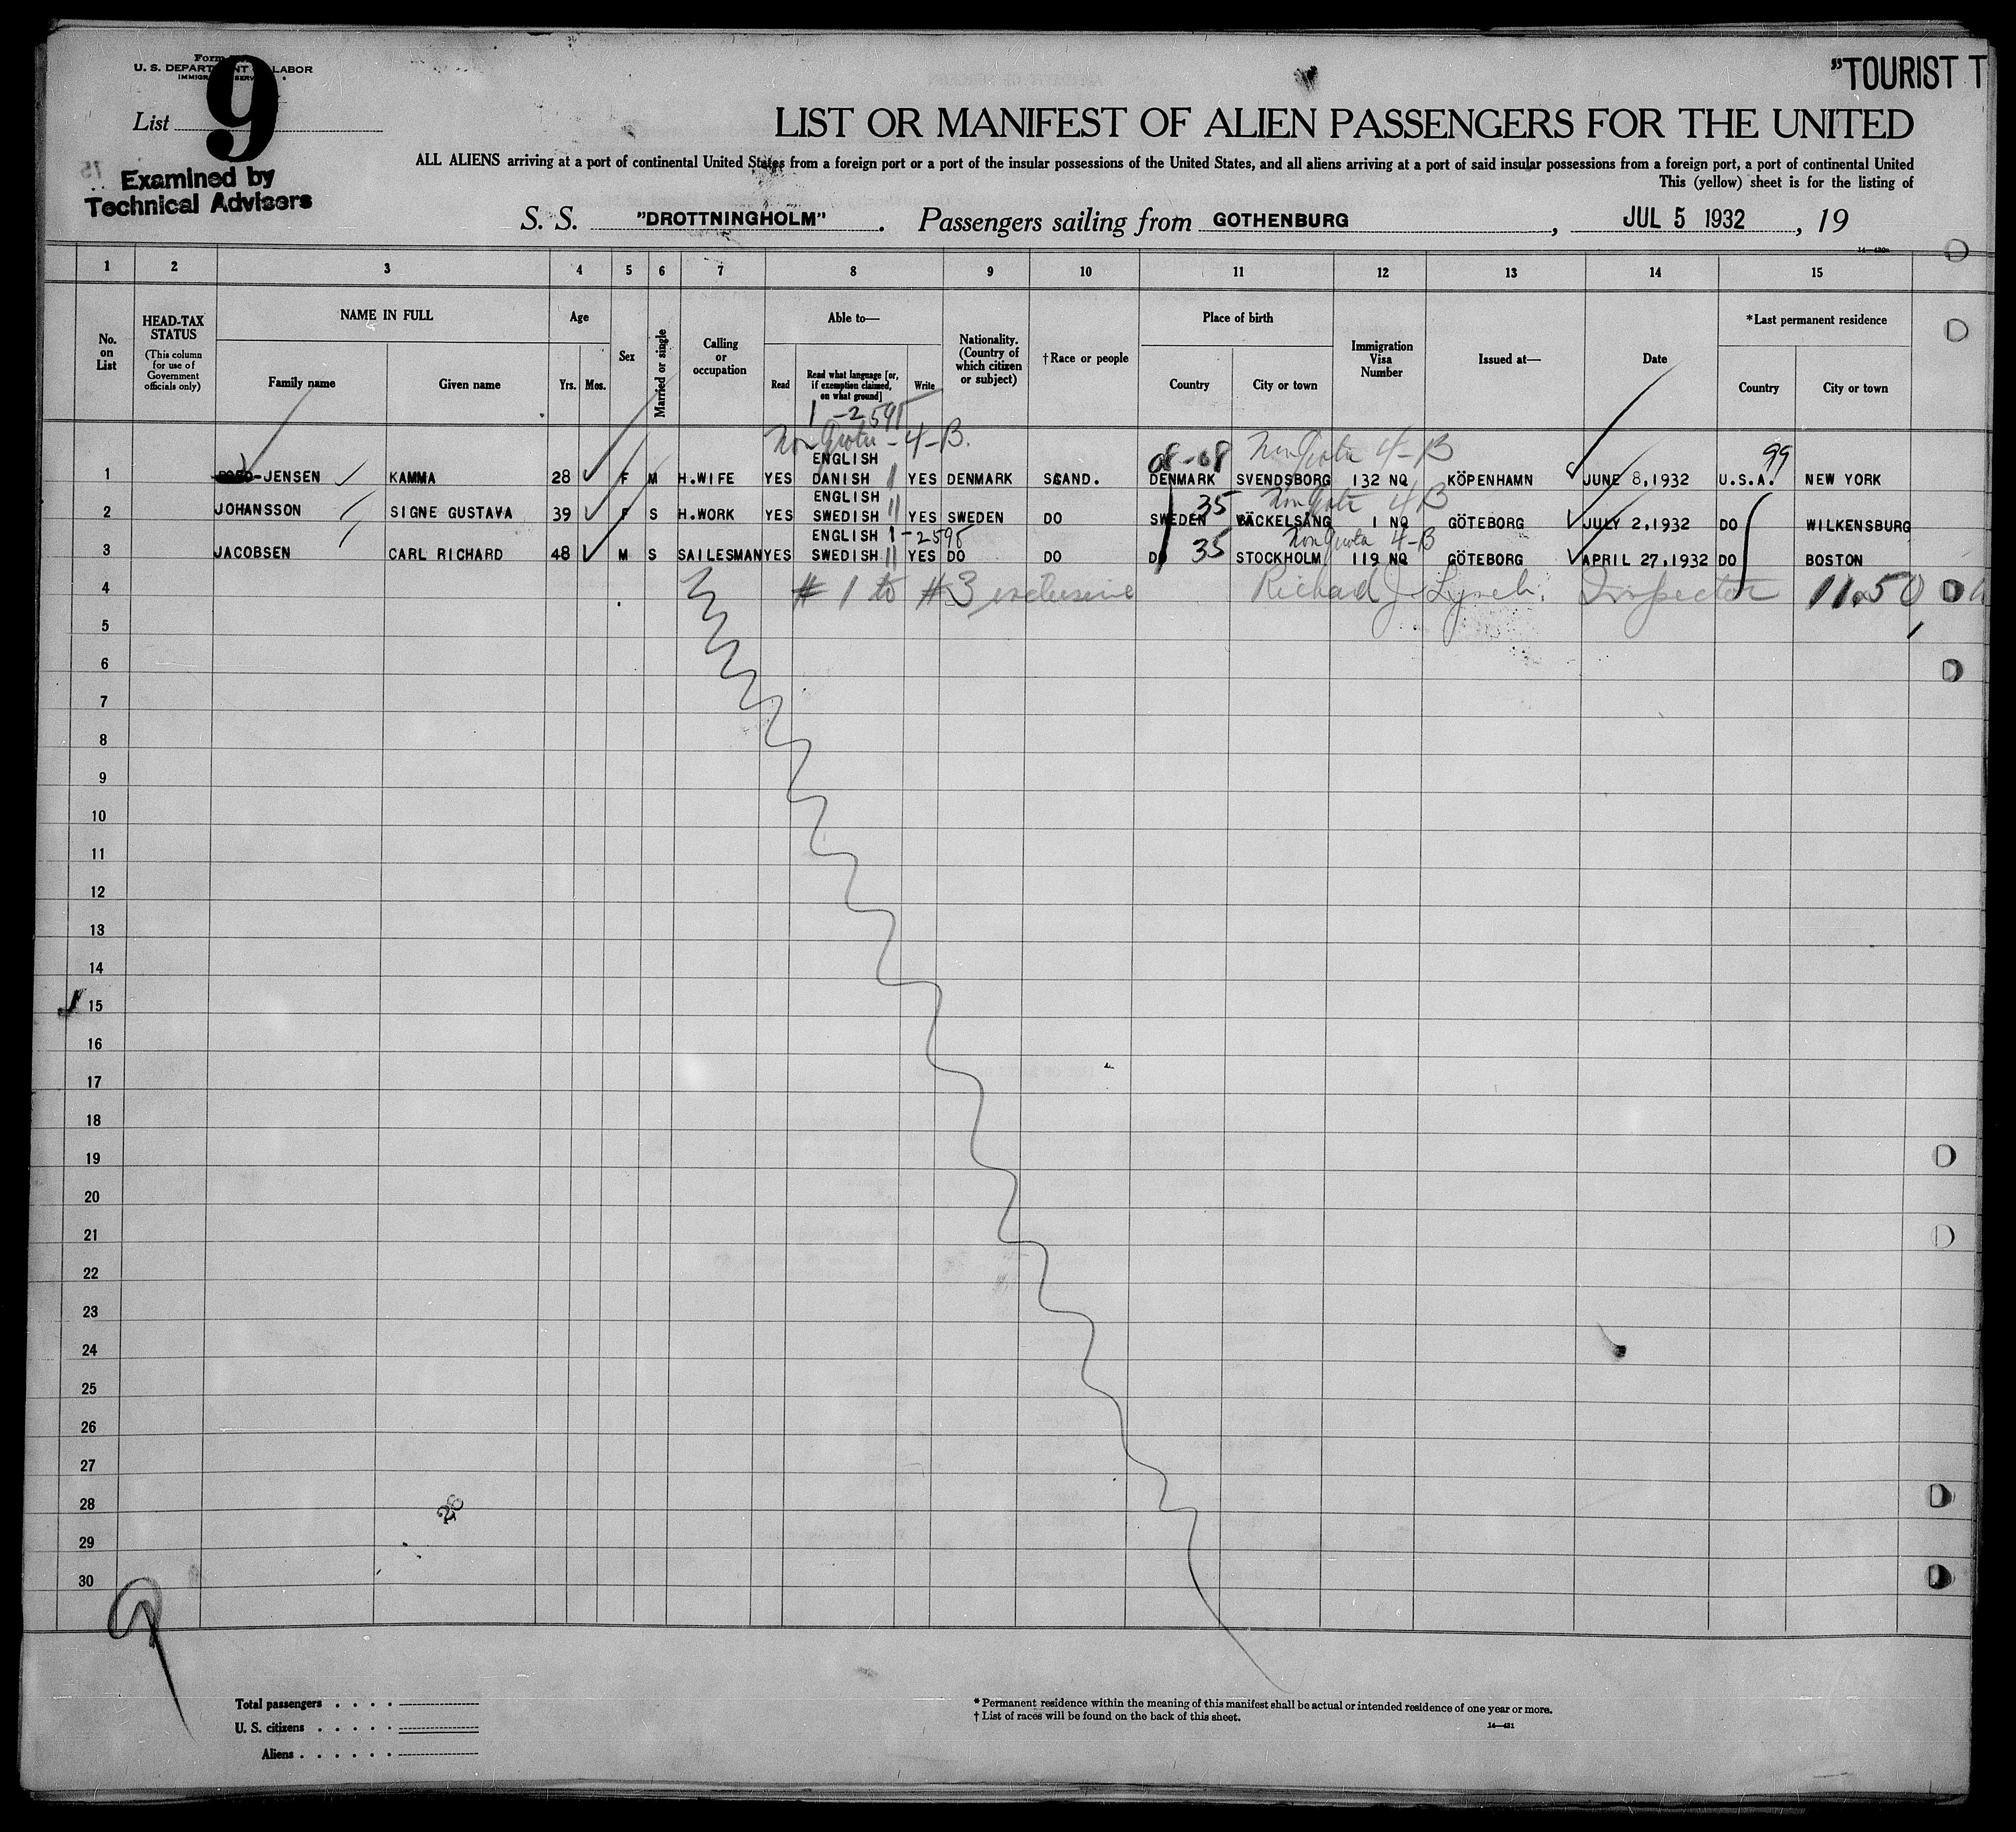 "TOURIST T
Form
U. S. DEPARTMENT LABOR
List 9
Examined by
Technical Advisers
LIST OR MANIFEST OF ALIEN PASSENGERS FOR THE UNITED
ALL ALIENS arriving at a port of continental United States from a foreign port or a port of the insular possessions of the United States, and all aliens arriving at a port of said insular possessions from a foreign port, a port of continental United
This (yellow) sheet is for the listing of
S. S. "DROTTNINGHOLM". Passengers sailing from GOTHENBURG, JUL 5 1932, 19
1 2 3 4 5 6 7 8 9 10 11 12 13 14 15
No. on List
HEAD-TAX STATUS
(This column for use of Government officials only)
NAME IN FULL
Family name
Given name
Age
Yrs. Mos.
Sex
Married or single
Calling or occupation
Able to—
Read
Read what language [or, if exemption claimed, on what ground]
Write
Nationality. (Country of which citizen or subject)
†Race or people
Place of birth
Country
City or town
Immigration Visa Number
Issued at—
Date
*Last permanent residence
Country
City or town
1-2595
Non Quota - 4-B. 08-08 Non Quota 4-B 99
1 -JENSEN KAMMA 28 F M H.WIFE YES ENGLISH DANISH YES DENMARK SCAND. DENMARK SVENDSBORG 132 NQ KÖPENHAMN JUNE 8,1932 U.S.A. NEW YORK
35 Non Quota 4-B
2 JOHANSSON SIGNE GUSTAVA 39 F S H.WORK YES ENGLISH SWEDISH YES SWEDEN DO SWEDEN BÄCKELSÄNG 1 NQ GÖTEBORG JULY 2,1932 DO WILKENSBURG
1-2595 35 Non Quota 4-B
3 JACOBSEN CARL RICHARD 48 M S SAILESMAN YES ENGLISH SWEDISH YES DO DO DO STOCKHOLM 119 NQ GÖTEBORG APRIL 27,1932 DO BOSTON
4 # 1 to # 3 inclusive Richard J. Lynch. Inspector 11.50
5
6
7
8
9
10
11
12
13
14
15
16
17
18
19
20
21
22
23
24
25
26
27
28
26
29
30
9
Total passengers . . . .
U. S. citizens . . . . .
Aliens . . . . . .
* Permanent residence within the meaning of this manifest shall be actual or intended residence of one year or more.
† List of races will be found on the back of this sheet.
14—431